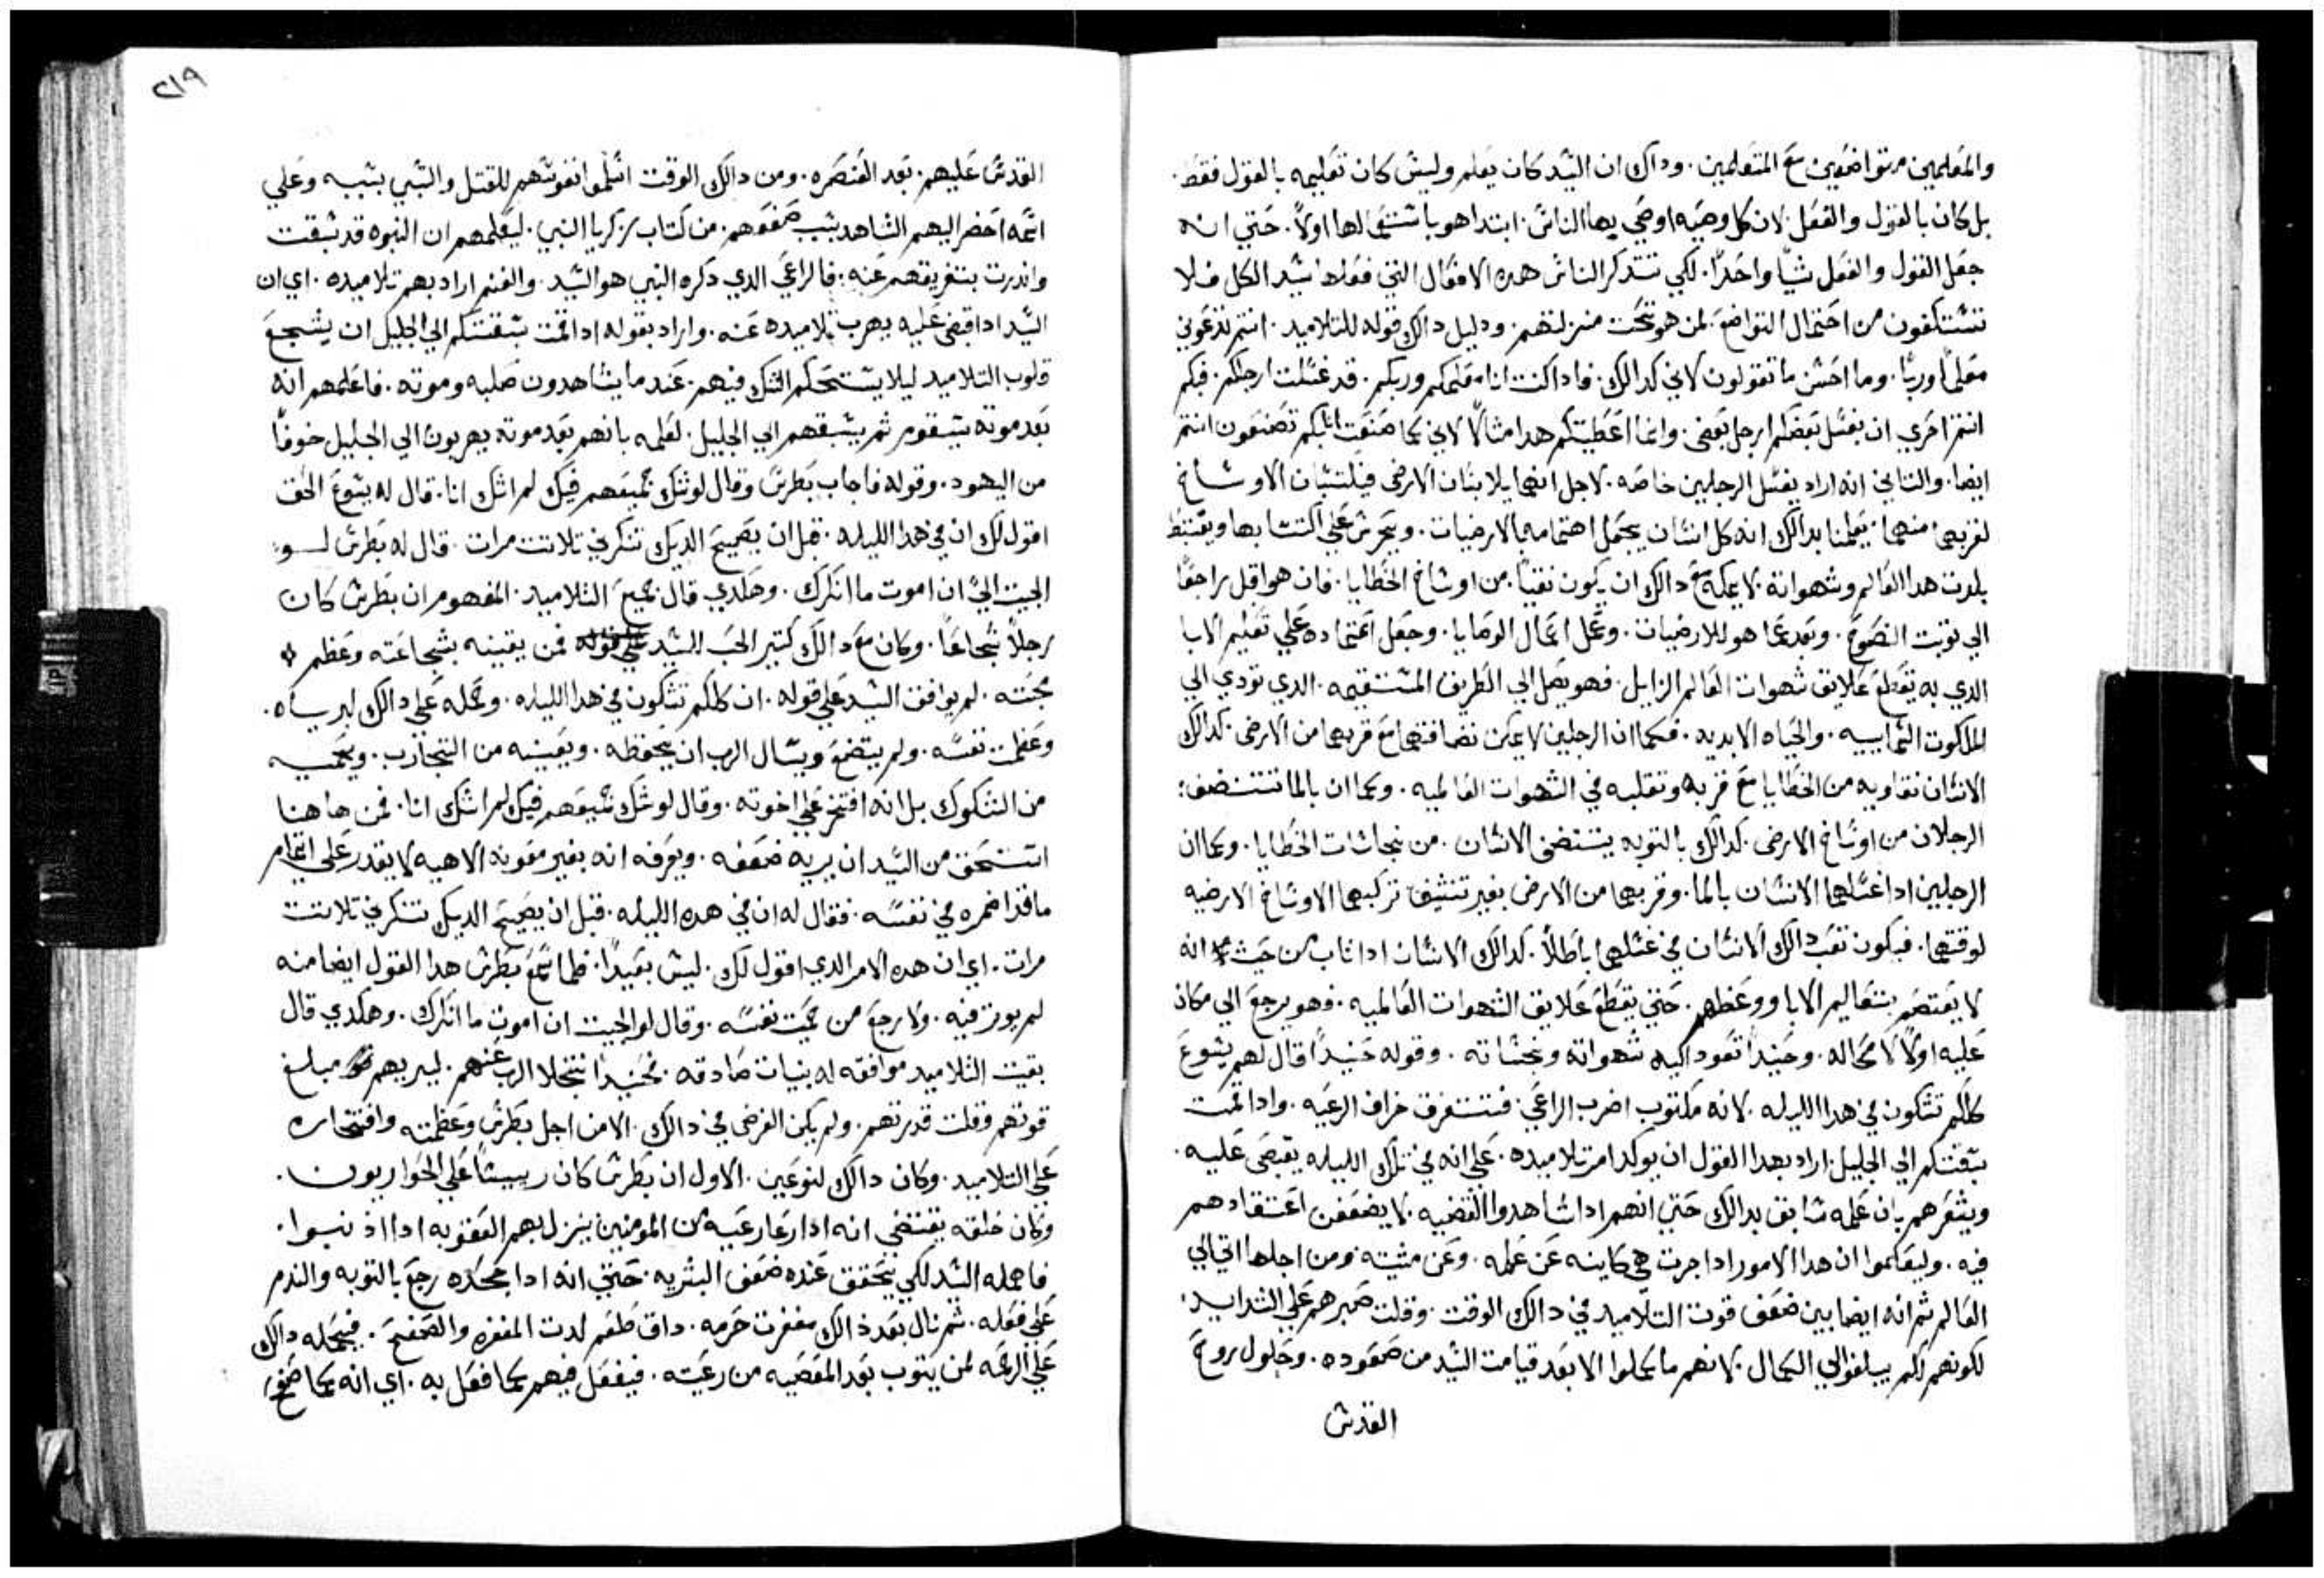 والمعلمين متواضعين مع المتعلمين. وداك ان السيد كان يعلم وليس كان تعليمه بالقول فقط.
بل كان بالقول والفعل. لان كل وصيه اوصي بها الناس. ابتدا هو باستعمالها اولاً. حتي انه
جعل القول والفعل شياً واحداً. لكي تتدكر الناس هده الافعال التي فعلها سيد الكل فلا
تستنكفون من احتمال التواضع. لمن هو تحت منزلتهم. ودليل دالك قوله للتلاميد. انتم تدعوني
معلماً وربّا. وما احسن ما تقولون لاني كدالك. فادا كنت انا معلمكم وربكم. قد غسلت ارجلكم. فكم
انتم احري ان يغسل بعضكم ارجل بعض. وانما اعطيتكم هدا مثالاً لاني كما صنعت انا بكم تصنعون انتم
ايضا. والتاني انه اراد بغسل الرجلين خاصه. لاجل انهما يلابسان الارض فيكتسبان الاوساخ
لقربهما منها. يعلمنا بدالك انه كل انسان يجعل اهتمامه بالارضيات. ويحرص علي اكتسابها ويغتبط
بلدت هدا العالم وشهواته. لا يمكنه مع دالك ان يكون نقياً. من اوساخ الخطايا. فان هو اقبل راجعاً
الي توبت النصوح. وبعد عما هو للارضيات. وعمل اعمال الوصايا. وجعل اعتماده علي تعليم الابا
الدي به يقطع علايق شهوات العالم الزايل. فهو يصل الي الطريق المستقيمه. الدي تودي الي
الملكوت السماييه. والحياه الابديه. فكما ان الرجلين لا يمكن نضافتهما مع قربهما من الارض. كدالك
الانسان نقاوبه من الخطايا مع قربه وتقلبه في الشهوات العالميه. وكما ان بالما تتنضف:
الرجلان من اوساخ الارض. كدالك بالتوبه يتنضف الانسان. من نجاسات الخطايا. وكما ان
الرجلين ادا غسلهما الانسان بالما. وقربهما من الارض بغير تنشيف تركبهما الاوساخ الارضيه
لوقتهما. فيكون تعب دالك الانسان في غسلهما باطلاً. كدالك الانسان ادا تاب من حيث انه
لا يعتصم بتعاليم الابا ووعظهم. حتي يقطع علايق الشهوات العالميه. فهو يرجع الي مكان
عليه اولاً لا محاله. وحينيداً تعود اليه شهواته ونجساته. وقوله حنيداً قال لهم يسوع
كلكم تشكون في هدا الليله. لانه مكتوب اضرب الراعي. فتتفرق خراف الرعيه. وادا قمت
سبقتكم الي الجليل. اراد بهدا القول ان يوكد امر تلاميده. علي انه في تلك الليله يقبض عليه.
ويشعرهم بان علمه سابق بدالك حتي انهم ادا شاهدوا القضيه. لا يضعفن اعتقادهم
فيه. وليعلموا ان هدا الامور ادا جرت هي كاينه عن علمه. وعن مشيته. ومن اجلها اتي الي
العالم ثم انه ايضا بين ضعف قوت التلاميد في دالك الوقت. وقلت صبرهم علي الشدايد.
لكونهم لم يبلغوا الي الكمال. لانهم ما كملوا الا بعد قيامت السيد من صعوده. وحلول روح
القدس
٢١٩
القدس عليهم. بعد العنصره. ومن دالك الوقت اسلموا نفوسهم للقتل والسبي بسببه وعلي
اسمه احضر اليهم الشاهد بسبب ضعفهم. من كتاب زكريا النبي. ليعلمهم ان النبوه قد سبقت
واندرت بتفريقهم عنه: فالراعي الدي دكره النبي هو السيد. والغنم اراد بهم تلاميده. اي ان
السيد ادا قبض عليه يهرب تلاميده عنه. واراد بقوله ادا قمت سبقتكم الي الجليل ان يشجع
قلوب التلاميد ليلا يستحكم الشك فيهم. عند ما يشاهدون صلبه وموته. فاعلمهم انه
بعد موته سيقوم ثم يسبقهم الي الجليل. لعلمه بانهم بعد موته يهربون الي الجليل خوفاً
من اليهود. وقوله فاجاب بطرس وقال لو شك جميعهم فيك لم اشك انا. قال له يسوع الحق
اقول لك ان في هدا الليله. قبل ان يصيح الديك تنكرني تلاتت مرات. قال له بطرس لو:
الجيت اليّ ان اموت ما انكرك. وهكدي قال جميع التلاميد. المفهوم ان بطرس كان
رجلاً شجاعاً. وكان مع دالك كتير الحب للسيد فمن يقينه بشجاعته وعظم
محبته. لم يوافق السيد علي قوله. ان كلكم تشكون في هدا الليله. وحمله علي دالك لبرياه.
وعظمت نفسه. ولم يتضع ويسال الرب ان يحفظه. ويعينه من التجارب. ويحميه
من الشكوك بل انه افتخر علي اخوته. وقال لو شك جميعهم فيك لم اشك انا. فمن هاهنا
استحق من السيد ان يريه ضعفه. ويعرفه انه بغير معونه الاهيه لا يقدر علي اتمام
ما قد اضمره في نفسه. فقال له ان في هده الليله. قبل ان يصيح الديك تنكرني تلاتت
مرات. اي ان هده الامر الدي اقول لك. ليس بعيداً. فلما سمع بطرس هدا القول ايضا منه
لم يورت فيه. ولا رجع من حميت نفسه. وقال لو الجيت ان اموت ما انكرك. وهكدي قال
بقيت التلاميد موافقه له بنيات صادقه. فحنيداً تخلا الرب عنهم. ليريهم مبلغ
قوتهم وقلت قدرتهم. ولم يكن الغرض في دالك. الا من اجل بطرس وعظمته وافتخاره
علي التلاميد. وكان دالك لنوعين. الاول ان بطرس كان رييساً علي الحواريون.
وكان خلقه يقتضي انه ادا رعا رعيه من المومنين ينزل بهم العقوبه ادا ادنبوا.
فاهمله السيد لكي يتحقق عنده ضعف البشريه. حتي انه ادا جحده رجع بالتوبه والندم
علي فعله. ثم نال بعد ذالك مغفرت جرمه. داق طعم لدت المغفره والصفح. فيحمله دالك
علي الرحمه لمن يتوب بعد المعصيه من رعيته. فيفعل فيهم كما فعل به. اي انه كما صفح